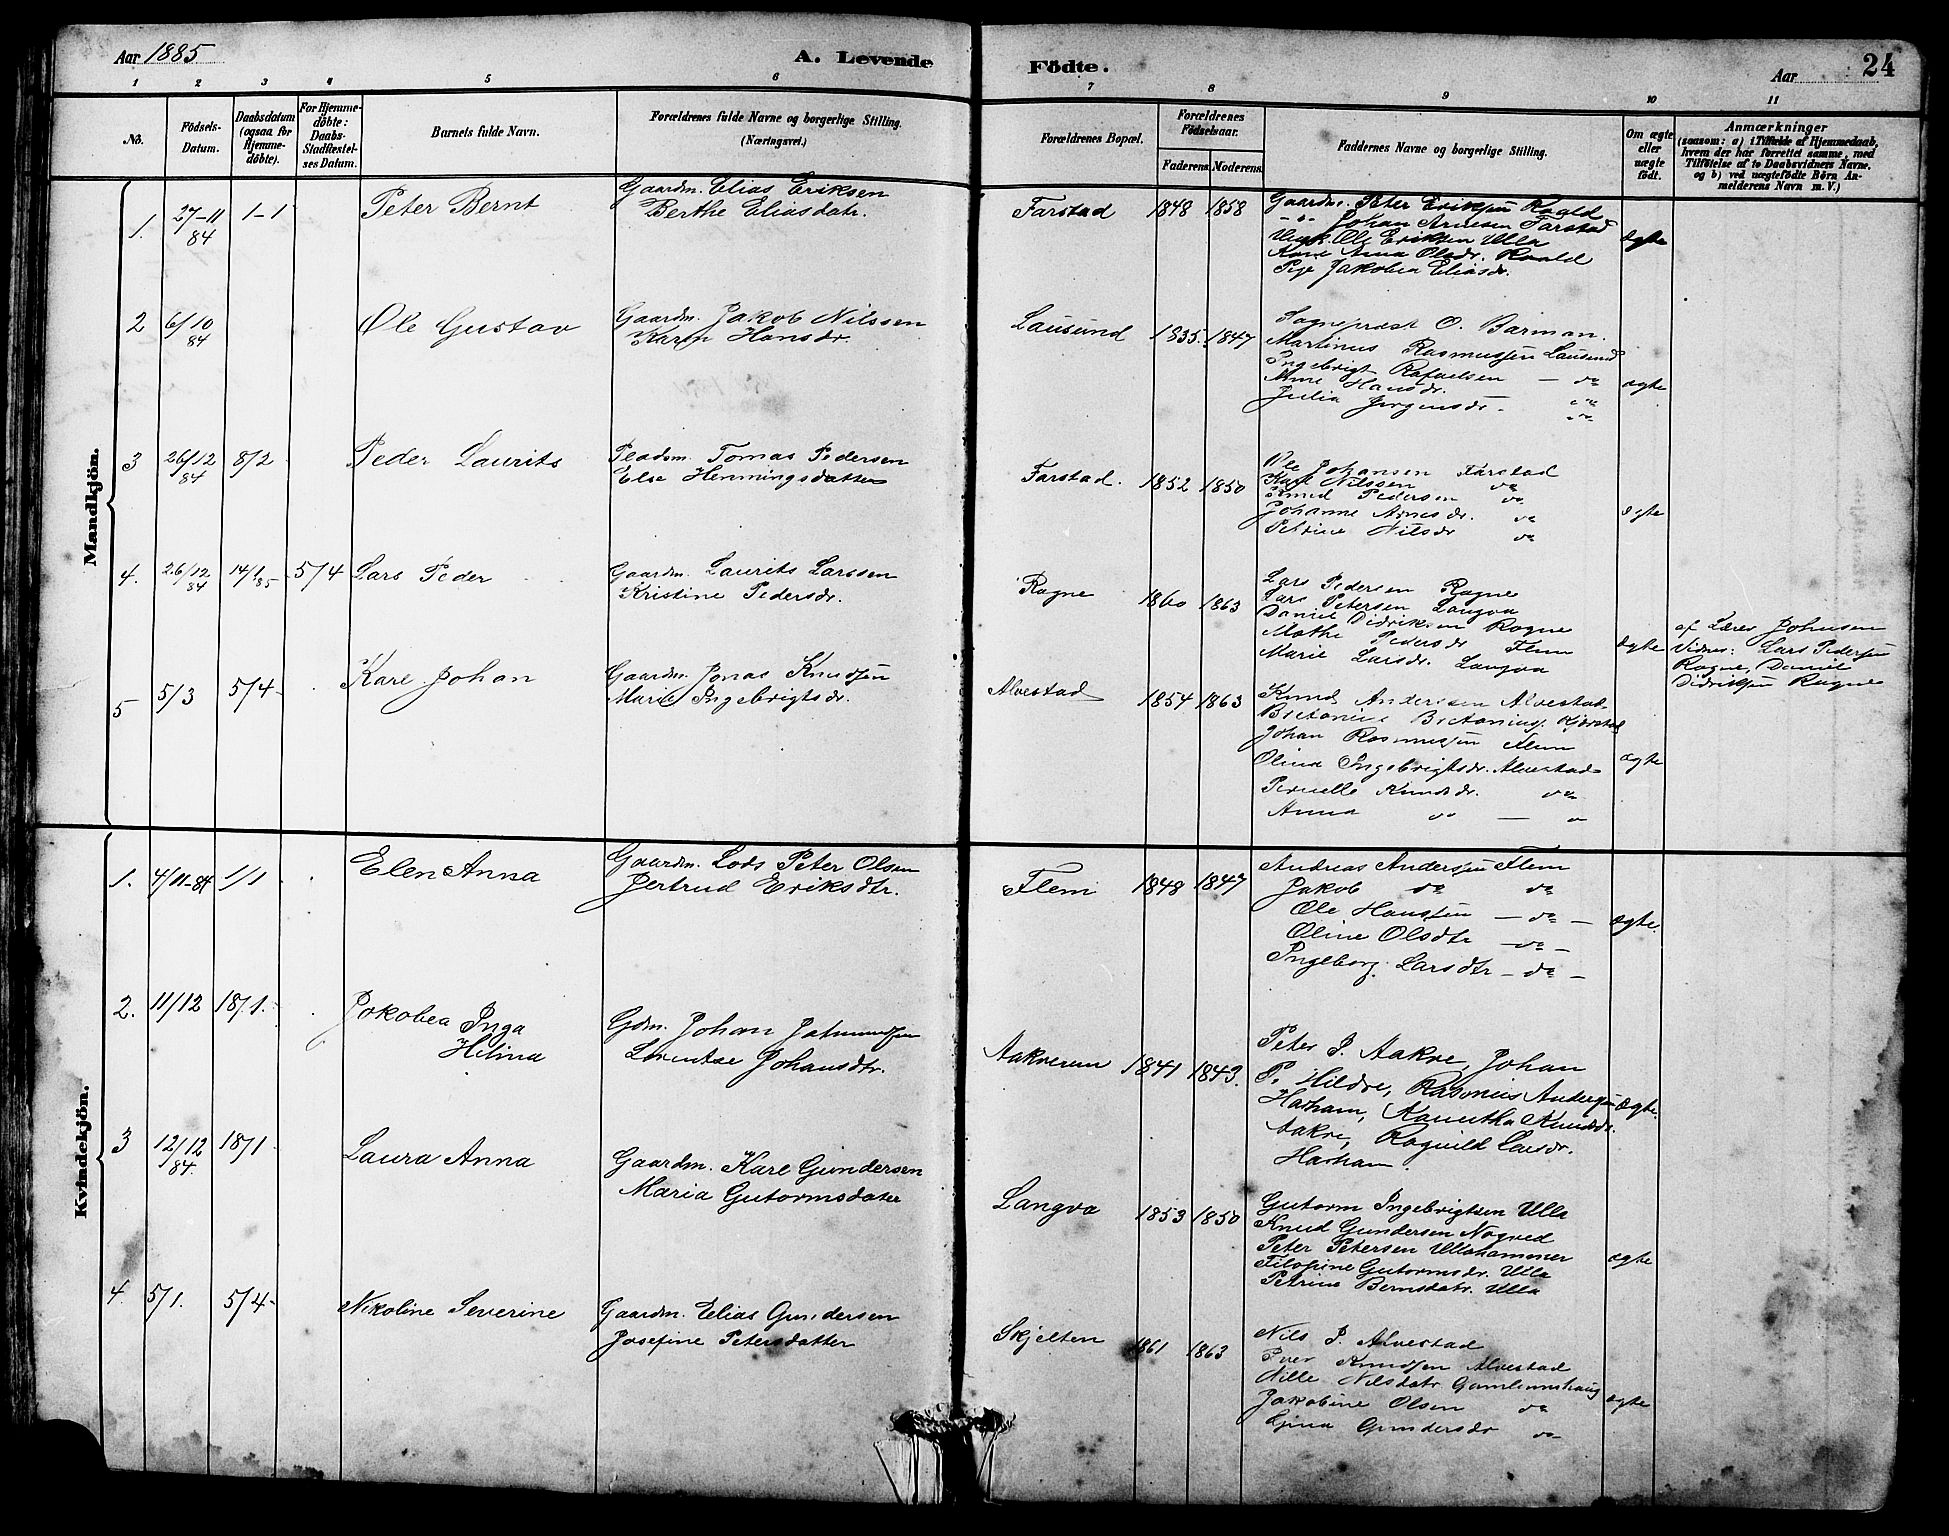 Aar 1885
A. Levende
Födte.
Aar
24
1 2 3 4 5 6 7 8 9 10 11
No.
Födsels-
Datum.
Daabsdatum
(ogsaa for
Hjemme-
döbte).
For Hjemme-
döbte:
Daabs-
Stadfæstel-
ses Datum.
Barnets fulde Navn.
Forældrenes fulde Navne og borgerlige Stilling.
(Næringsvei.)
Forældrenes Bopæl.
Forældrenes
Födselsaar.
Faderens.
Moderens.
Faddernes Navne og borgerlige Stilling.
Om ægte
eller
uægte
födt.
Anmærkninger
(saasom: a) i Tilfælde af Hjemmedaab,
hvem der har forrettet samme, med
Tilföielse af to Daabsvidners Navne.
og b) ved uægtefödte Börn An-
melderens Navn m. V.)
Mandkjön.
1. 27-11 84 1-1 Peter Bernt
Gaardm. Elias Eriksen
Berthe Eliasdatr.
Farstad 1848 1858
Gaardm. Peter Eriksen Roald
Johan Arnesen Farstad
Ungk. Ole Eriksen Ulla
Kone Anna Olsdr. Roald
Pige Jakobea Eliasdr.
ægte
2 6/10 84 Ole Gustav
Gaardm. Jakob Nilssen
Karen Hansdr.
Lausund 1835. 1847
Sogneprest O. Barman.
Martinus Rasmussen Lausund
Ingebrigt Rafaelsen — do
Hansdr.
Julia Jørgensdr. do
ægte
3 26/12 84 8/2 Peder Laurits
Pladsm. Tomas Pedersen
Else Henningsdatter
Farstad. 1852 1850
Ole Johansen Farstad
Kare Nilssen do
Knud Pedersen do
Johanne Arnesdr. do
Petrine Nilsdr do
ægte
4. 26/12 84 14/1 85 5/4 Lars Peder
Gaardm. Laurits Larssen
Kristine Pedersdr.
Rogne 1860 1863
Lars Pedersen Rogne
Lars Petersen Langva
Daniel Didriksen Rogne
Mathe Pedersdr Flem
Marie Larsdr. Langva
ægte
af Lærer Johnsen
Vidner: Lars Pedersen
Rogne, Daniel
Didriksen Rogne
5 5/3 5/4 Kare Johan
Gaardm. Jonas Knudsen
Marie Ingebrigtsdr.
Alvestad 1854 1863
Knud Andersen Alvestad
Johan Rasmussen Flem
Olina Ingebrigtsdr. Alvestad
Pernelle Knudsdr. do
Anna do — do
ægte
Kvindekjön.
1. 4/11-84 1/1 Elen Anna
Gaardm. Lods Peter Olsen
Gertrud Eriksdtr.
Flem 1848 1847
Andreas Andersen Flem
Jakob do do
Ole Hanssen — do —
Oline Olsdtr — do —
Ingeborg Larsdtr — do —
ægte.
2. 11/12 18/1. Jakobea Inga
Helina
Gdm. Johan Jetmundsen
Lorentse Johansdtr.
Aakrerem 1841 1843.
Peter J. Aakre, Johan
P. Hildre, Rasmus Andersen
Harham, Knudsdr.
Aakre, Ragnild Larsdr.
Harham.
ægte.
3 12/12 84. 18/1 Laura Anna
Gaardm. Kare Gundersen
Maria Gutormsdater
Langva 1853 1850
Gutorm Ingebrigtsen Ulla
Knud Gundersen Nogved
Peter Petersen Ullahammer
Filopine Gutormsdr. Ulla
Petrine Berntsdatr. Ulla
ægte
4. 5/1. 5/4 Nikoline Severine
Gaardm. Elias Gundersen
Josefine Petersdatter
Skjelten 1861 1863
Nils J. Alvestad
Iver Knudsen Alvestad
Nille Nilsdatr Gamlemshaug
Jakobine Olsen do
Gina Gundersdr do
ægte